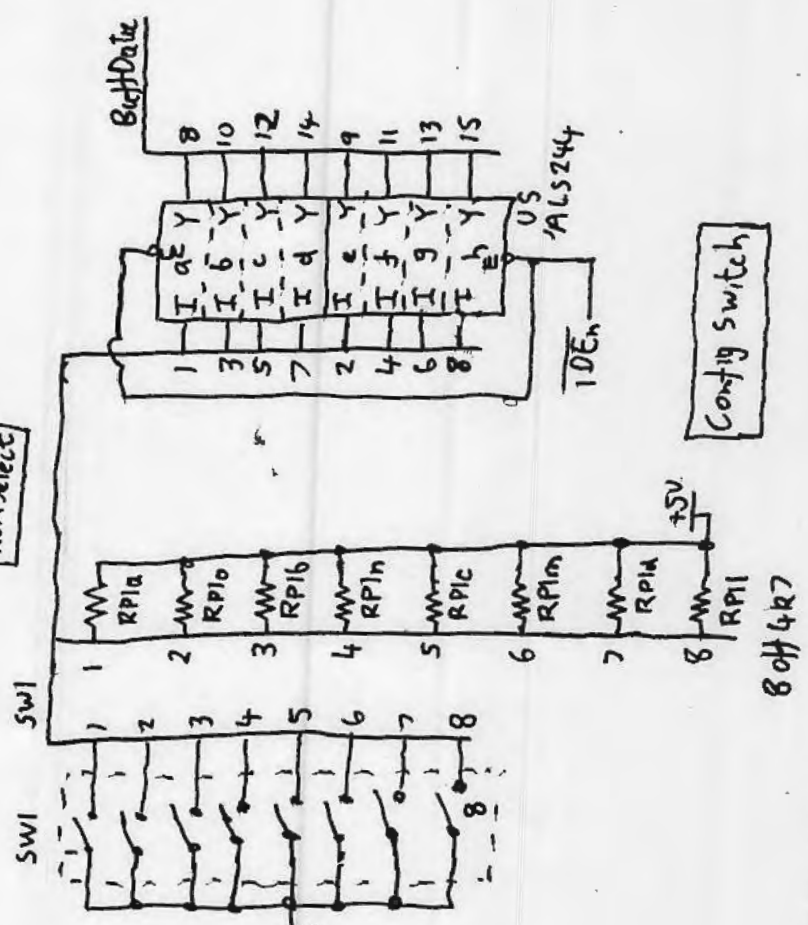 SW1
SW1
1
2
3
4
5
6
7
8
8
select
1
2
3
4
5
6
7
8
RP1a
RP1o
RP1b
RP1n
RP1c
RP1m
RP1d
RP1l
+5V
8 off 4k7
1
3
5
7
2
4
6
8
I a E Y
I b Y
I c Y
I d Y
I e Y
I f Y
I g Y
I h E Y
8
10
12
14
9
11
13
15
BuffData
U5
'ALS244
IDEn
Config Switch